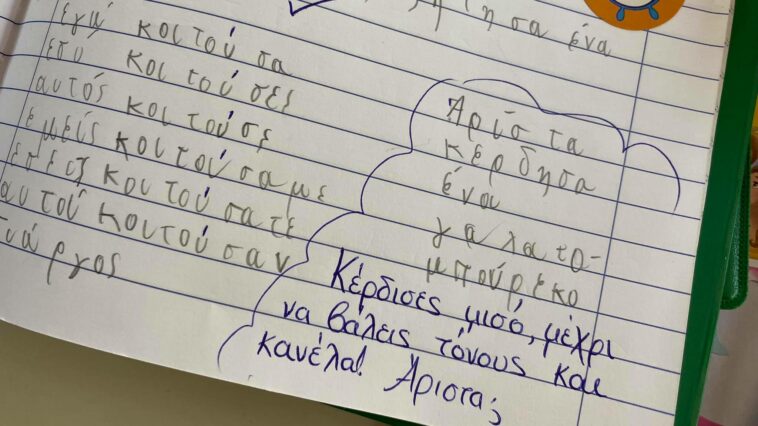 σα ένα
εγώ κοιτούσα
εσυ κοιτούσες
αυτός κοιτούσε
εμείς κοιτούσαμε
εσεις κοιτούσατε
αυτοί κοιτούσαν
Άριστα
κέρδησα
ένα
γαλατο-
μπούρεκο
Κέρδισες μισό, μέχρι
να βάλεις τόνους και
κανέλα! Άριστα;